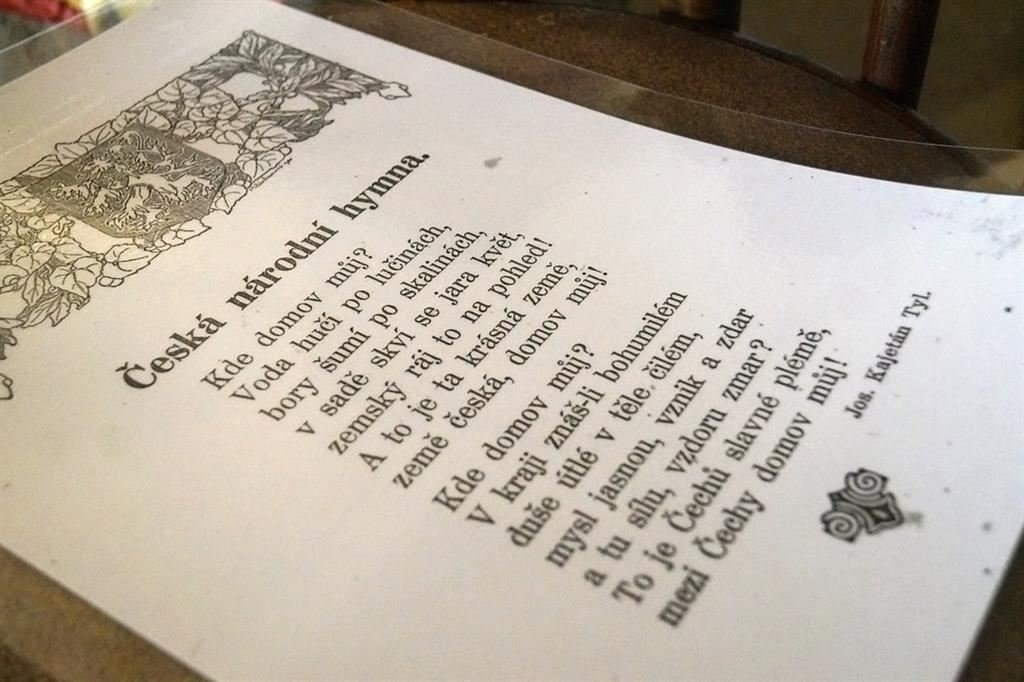 Česká národní hymna.
Kde domov můj?
Voda hučí po lučinách,
bory šumí po skalinách,
v sadě skví se jara květ,
zemský ráj to na pohled!
A to je ta krásná země,
země česká, domov můj!
Kde domov můj?
V kraji znáš-li bohumilém
duše útlé v těle čilém,
mysl jasnou, vznik a zdar
a tu sílu, vzdoru zmar?
To je Čechů slavné plémě,
mezi Čechy domov můj!
Jos. Kajetán Tyl.